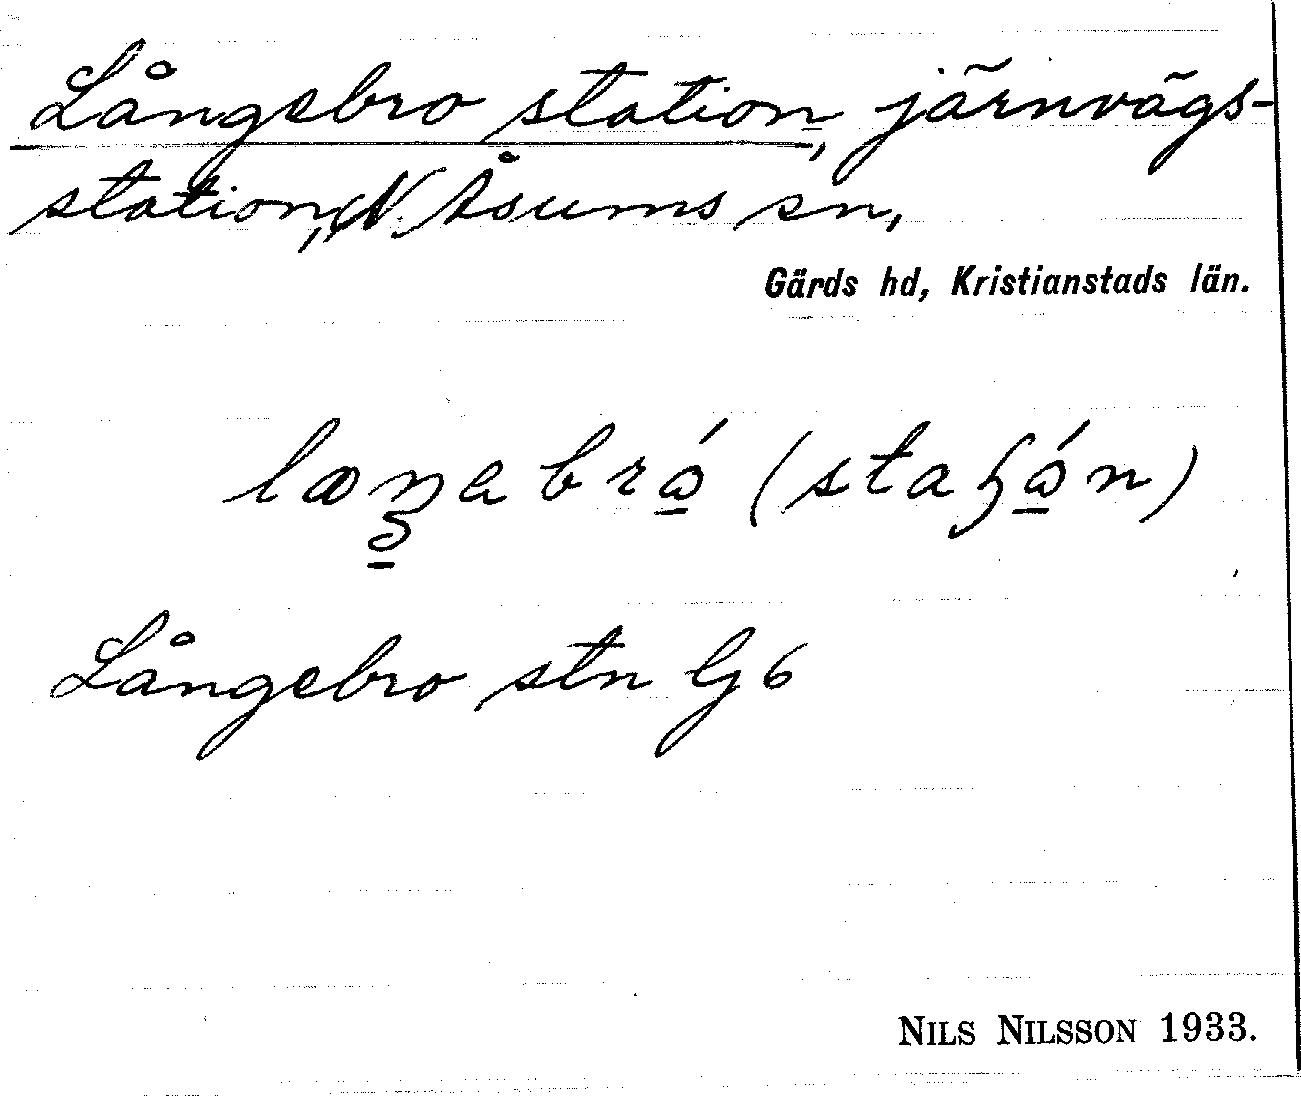 Långebro station, järnvägs-
station, N. Åsums sn,
Gärds hd, Kristianstads län.
laŋabrǻ (staʃǻn)
Långebro stn G6
NILS NILSSON 1933.